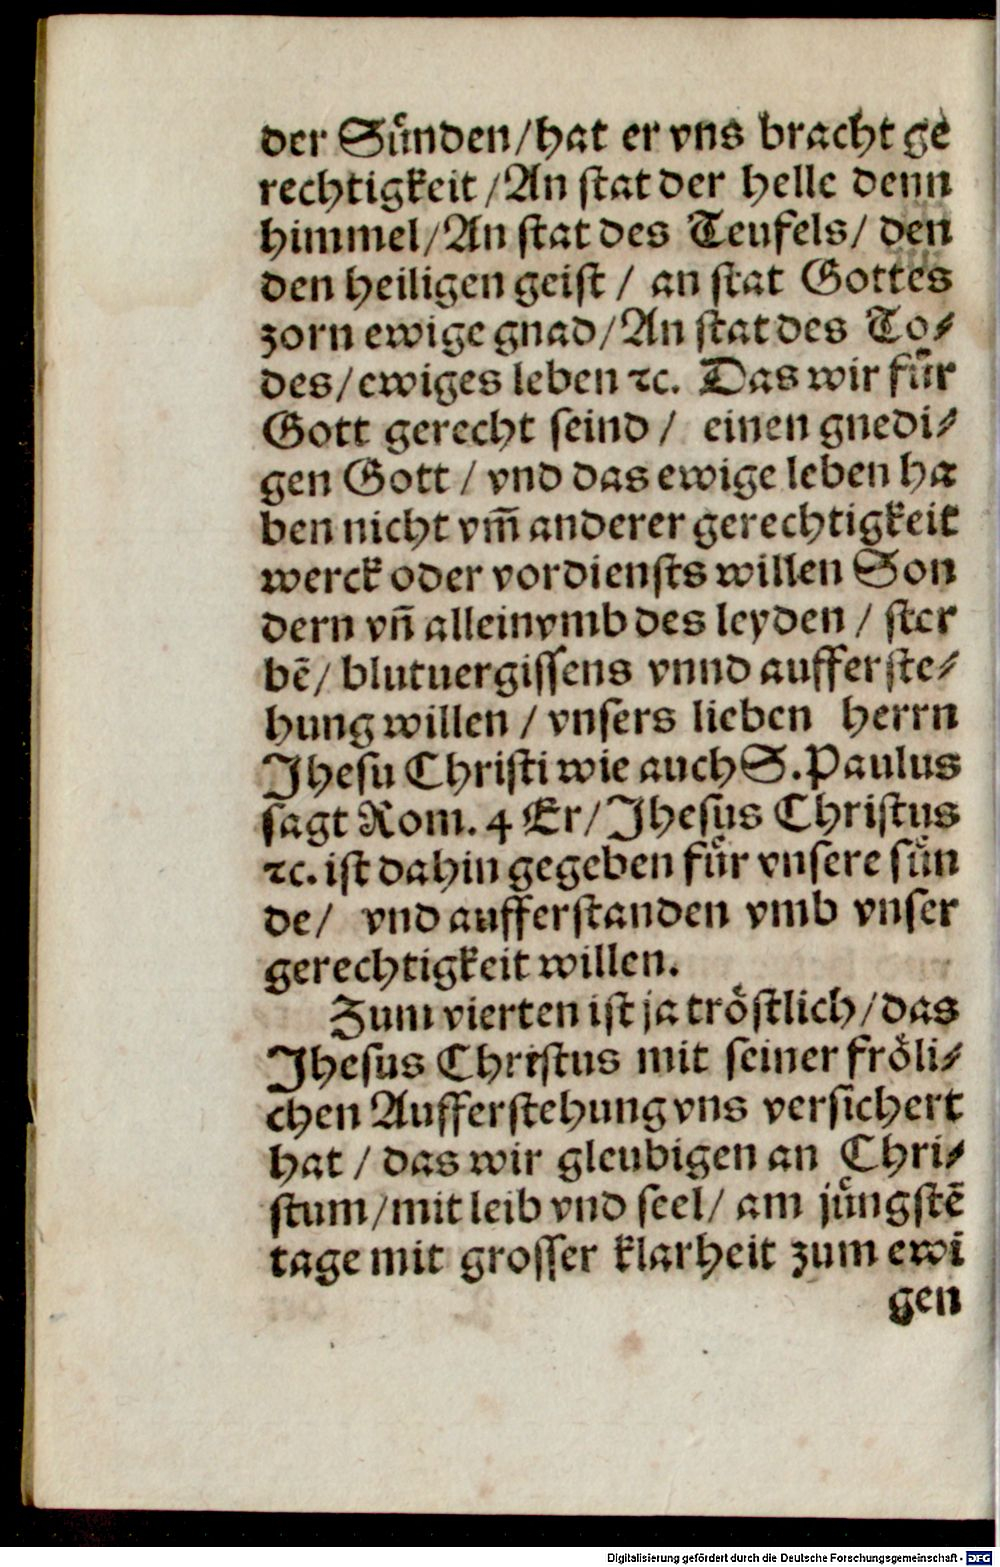 der Sünden/hat er vns bracht ge
rechtigkeit/An stat der helle denn
himmel/An stat des Teufels/ den
den heiligen geist / an stat Gottes
zorn ewige gnad/An stat des To⸗
des/ewiges leben ꝛc. Das wir für
Gott gerecht seind / einen gnedi⸗
gen Gott / vnd das ewige leben ha
ben nicht vm̃ anderer gerechtigkeit
werck oder vordiensts willen Son
dern vñ allein vmb des leyden / ster
bẽ/ blutuergissens vnnd aufferste⸗
hung willen / vnsers lieben herrn
Jhesu Christi wie auch S. Paulus
sagt Rom. 4 Er/Jhesus Christus
ꝛc. ist dahin gegeben für vnsere sün
de/ vnd aufferstanden vmb vnser
gerechtigkeit willen.
Zum vierten ist ja tröstlich/das
Jhesus Christus mit seiner fröli⸗
chen Aufferstehung vns versichert
hat / das wir gleubigen an Chri⸗
stum/mit leib vnd seel/ am jüngstẽ
tage mit grosser klarheit zum ewi
gen
Digitalisierung gefördert durch die Deutsche Forschungsgemeinschaft - DFG